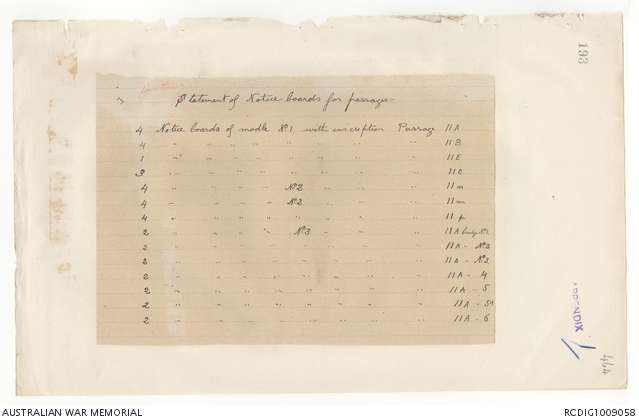 193
Statement of Notice boards for passages -
4 Notice boards of modle No 1 with inscription Passage 11A
4 " " " " " " " " 11B
1 " " " " " " " " 11E
3 " " " " " " " " 11C
4 " " " " No 2 " " " 11m
4 " " " " No 2 " " " 11m
4 " " " " " " " " 11p
2 " " " " No 3 " " " 11A bridge No 1
2 " " " " " " " " 11A - No 2
2 " " " " " " " " 11A - No 2
2 " " " " " " " " 11A - 4
2 " " " " " " " " 11A - 5
2 " " " " " " " " 11A - 5A
2 " " " " " " " " 11A - 6
APPENDIX
464
AUSTRALIAN WAR MEMORIAL
RCDIG1009058